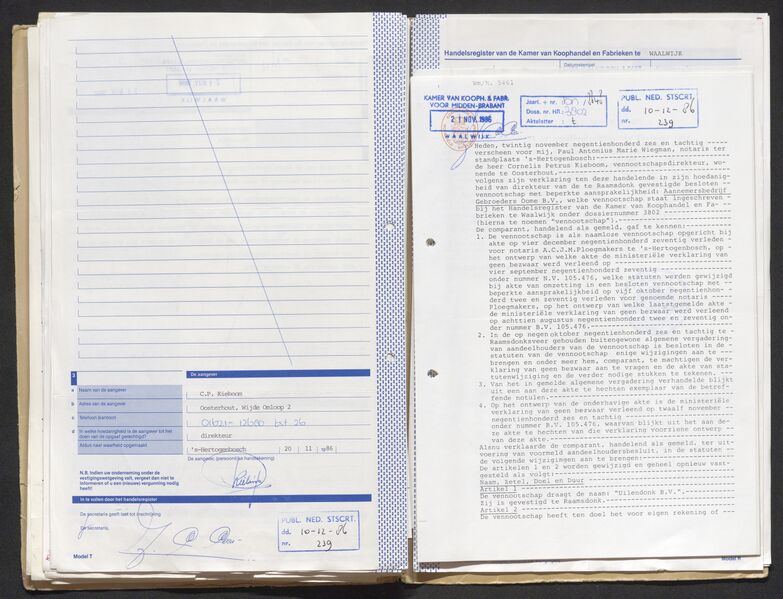 3 De aangever
a Naam van de aangever
C.P. Kieboom
b Adres van de aangever
Oosterhout, Wijde Omloop 2
c Telefoon (kantoor)
01621-12680 tst 26
d In welke hoedanigheid is de aangever tot het doen van de opgaaf gerechtigd?
direkteur
Aldus naar waarheid opgemaakt
's-Hertogenbosch 20 11 1986
De aangever, (persoonlijke handtekening)
N.B. Indien uw onderneming onder de
vestigingswetgeving valt, vergeet dan niet te
informeren of u een (nieuwe) vergunning nodig
heeft!
In te vullen door het handelsregister
De secretaris geeft last tot inschrijving
De secretaris,
PUBL. NED. STSCRT.
dd. 10-12-86
nr. 239
Model T
Handelsregister van de Kamer van Koophandel en Fabrieken te WAALWIJK
Datumstempel
KAMER VAN KOOPH. & FABR.
VOOR MIDDEN-BRABANT
21 NOV. 1986
WAALWIJK
Jaarl. + nr.
Doss. nr. HR: 3802
Aktelatter : t
PUBL. NED. STSCRT.
dd. 10-12-86
nr. 239
Heden, twintig november negentienhonderd zes en tachtig -----
verscheen voor mij, Paul Antonius Marie Wiegman, notaris ter
standplaats 's-Hertogenbosch:-----
de heer Cornelis Petrus Kieboom, vennootschapsdirekteur, wo-
nende te Oosterhout,-----
volgens zijn verklaring ten deze handelende in zijn hoedanig-
heid van direkteur van de te Raamsdonk gevestigde besloten -
vennootschap met beperkte aansprakelijkheid: Aannemersbedrijf
Gebroeders Oome B.V., welke vennootschap staat ingeschreven -
bij het Handelsregister van de Kamer van Koophandel en Fa-
brieken te Waalwijk onder dossiernummer 3802 -----
(hierna te noemen "vennootschap").-----
De comparant, handelend als gemeld, gaf te kennen:-----
1. De vennootschap is als naamloze vennootschap opgericht bij
akte op vier december negentienhonderd zeventig verleden -
voor notaris A.C.J.M.Ploegmakers te 's-Hertogenbosch, op -
het ontwerp van welke akte de ministeriële verklaring van
geen bezwaar werd verleend op -----
vier september negentienhonderd zeventig -----
onder nummer N.V. 105.476, welke statuten werden gewijzigd
bij akte van omzetting in een besloten vennootschap met --
beperkte aansprakelijkheid op vijf oktober negentienhon-
derd twee en zeventig verleden voor genoemde notaris -----
Ploegmakers, op het ontwerp van welke laatstgemelde akte -
de ministeriële verklaring van geen bezwaar werd verleend
op achttien augustus negentienhonderd twee en zeventig on-
der nummer B.V. 105.476.-----
2. In de op negen oktober negentienhonderd zes en tachtig te -
Raamsdonksveer gehouden buitengewone algemene vergadering-
van aandeelhouders van de vennootschap is besloten in de -
statuten van de vennootschap enige wijzigingen aan te ---
brengen en onder meer hem, comparant, te machtigen de ver-
klaring van geen bezwaar aan te vragen en de akte van sta-
tutenwijziging en de verder nodige stukken te tekenen. ---
3. Van het in gemelde algemene vergadering verhandelde blijkt
uit een aan deze akte te hechten exemplaar van de betref-
fende notulen.-----
4. Op het ontwerp van de onderhavige akte is de ministeriële
verklaring van geen bezwaar verleend op twaalf november --
negentienhonderd zes en tachtig -----
onder nummer B.V. 105.476, waarvan blijkt uit het aan de-
ze akte te hechten van die verklaring voorziene ontwerp --
van deze akte.-----
Alsnu verklaarde de comparant, handelend als gemeld, ter uit-
voering van voormeld aandeelhoudersbesluit, in de statuten --
de volgende wijzigingen aan te brengen:-----
De artikelen 1 en 2 worden gewijzigd en geheel opnieuw vast-
gesteld als volgt:-----
Naam, Zetel, Doel en Duur
Artikel 1 -----
De vennootschap draagt de naam: "Uilendonk B.V.".-----
Zij is gevestigd te Raamsdonk.-----
Artikel 2 -----
De vennootschap heeft ten doel het voor eigen rekening of ---